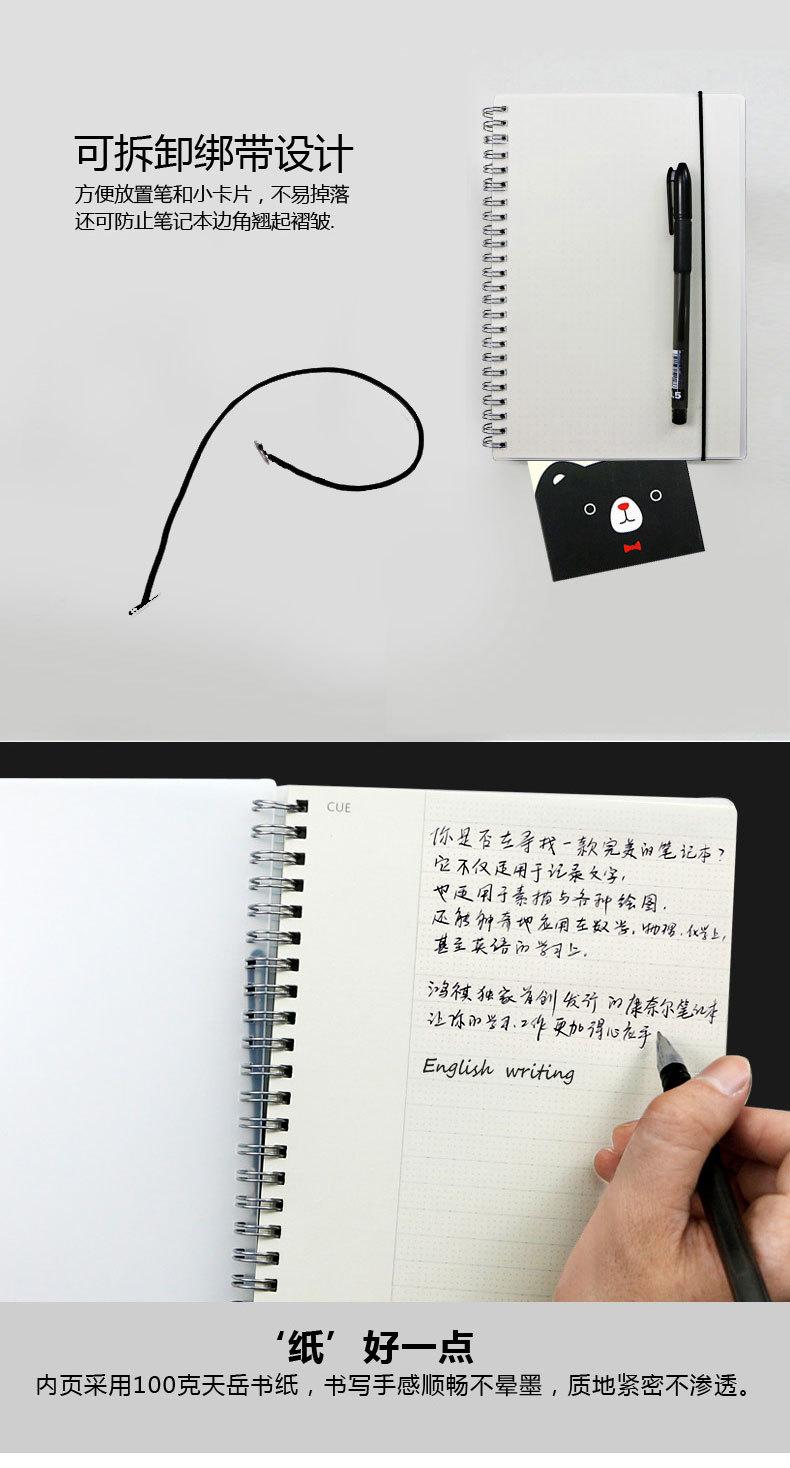 可拆卸绑带设计
方便放置笔和小卡片，不易掉落
还可防止笔记本边角翘起褶皱.
CUE
你是否在寻找一款完美的笔记本?
它不仅适用于记录文字,
也适用于素描与各种绘图.
还能神奇地应用在数学、物理、化学上,
甚至英语的学习上.
鸿祺独家首创发行的康奈尔笔记本
让你的学习、工作更加得心应手
English writing
‘纸’好一点
内页采用100克天岳书纸，书写手感顺畅不晕墨，质地紧密不渗透。